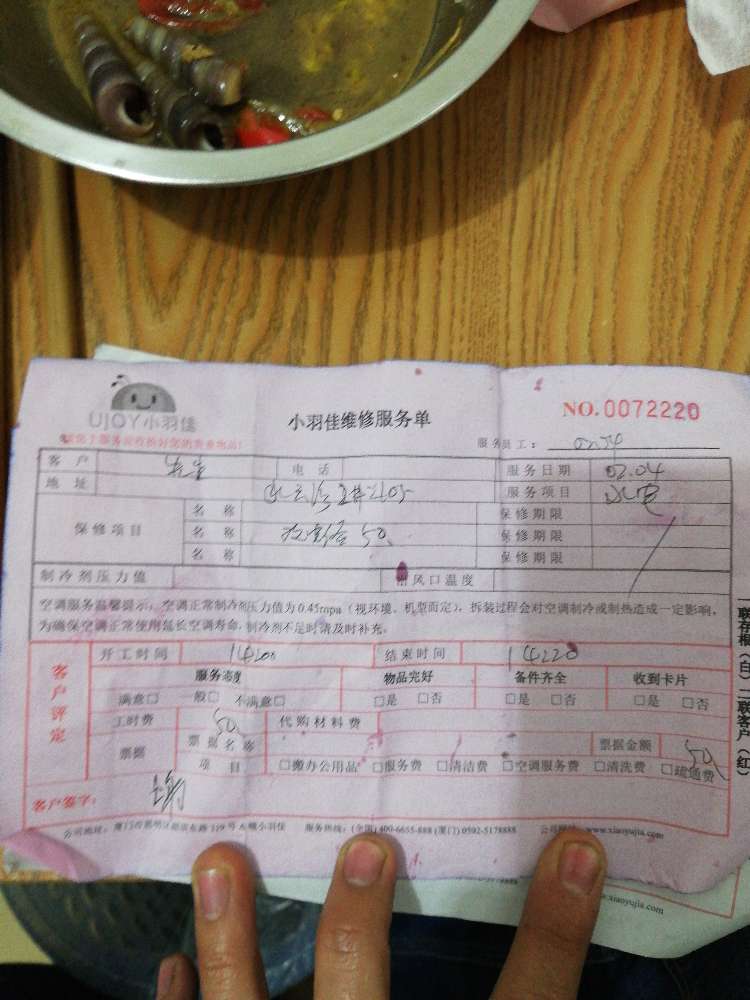 UJOY小羽佳
小羽佳维修服务单
NO.0072220
服务员工：
客户 先生 电话 服务日期 02.04
地址 服务项目 水电
保修项目 名称 保修期限
名称 50 保修期限
名称 保修期限
制冷剂压力值 出风口温度
空调服务温馨提示：空调正常制冷剂压力值为0.45mpa（视环境、机型而定），拆装过程会对空调制冷或制热造成一定影响，
为确保空调正常使用延长空调寿命，制冷剂不足时请及时补充。
客户评定
开工时间 14:00 结束时间 14:20
服务态度 物品完好 备件齐全 收到卡片
满意□ 一般□ 不满意□ □是 □否 □是 □否 □是 □否
工时费 50 代购材料费
票据 票据名称 票据金额 50
项目 □搬办公用品 □服务费 □清洁费 □空调服务费 □清洗费 □疏通费
客户签字：
服务热线：(全国) 400-6655-888 (厦门) 0592-5178888 公司网址：www.xiaoyujia.com
一联存根（白）二联客户（红）
www.xiaoyujia.com